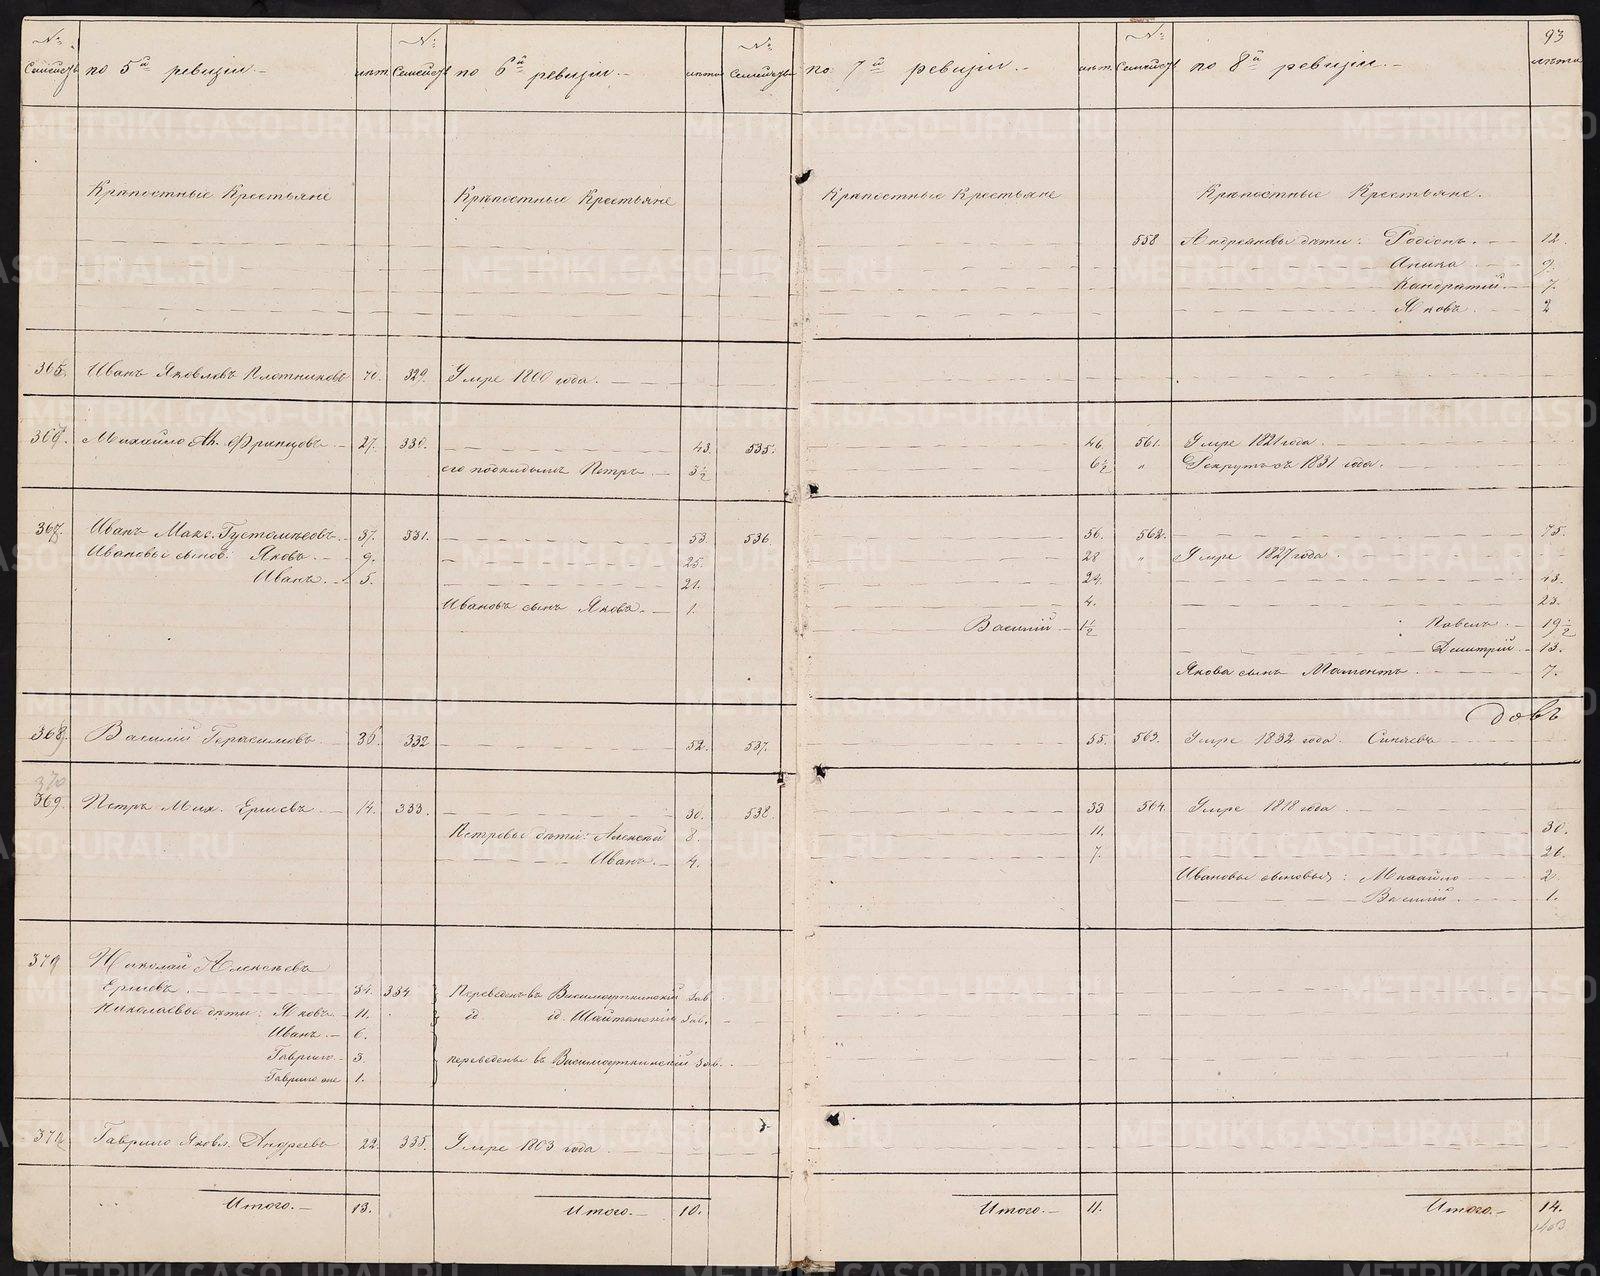 93
№ Семействъ по 5й ревизіи лѣта № Семействъ по 6й ревизіи лѣта № Семействъ по 7й ревизіи лѣта № Семействъ по 8й ревизіи лѣта
Крѣпостные Крестьяне Крѣпостные Крестьяне Крѣпостные Крестьяне Крѣпостные Крестьяне.
558 дѣти: Родіонъ. 12.
Аника 9.
Кандратій. 7.
Яковъ. 2
365. Иванъ Яковлевъ Плотниковъ 329. Умре 1800 года.
Михайло 27. 330. 43. 535. 46 561. Умре 1821 года
его Петръ 3½ 6½ „ Рекрутъ съ 1831 года.
367. Иванъ Макс. 37. 331. 53. 536. 56. 562. 75.
Ивановы сынов: Яковъ. 9. 25. 28 „ Умре 1827 года.
Иванъ. 5. 21. 24.
Ивановъ сынъ Яковъ. 1. 4. 23.
Василій 1½ Павелъ. 19½
Дмитрій 13.
Якова сынъ Мамонтъ 7.
довъ
368. Василій Герасимовъ 36 332 52. 537. 55. 563. Умре 1832 года. Синяевъ
370
369. Петръ Мих. Ершевъ 14. 333 30. 538. 33 564. Умре 1818 года
Петровы дѣти: Алексѣй 8. 11. 30.
Иванъ. 4. 7. 26.
Ивановы сыновья: Михайло 2
Василій 1.
Николай Алексѣевъ
Ершевъ. 34. 334 Переведенъ въ Висимоуткинскій зав.
Николаевы дѣти: Яковъ 11. Шайтанскій зав.
Иванъ. 6.
Гаврило 3. переведены въ Висимоуткинскій зав.
Гаврило же 1.
Гаврило Яковл. Андреевъ 22. 335. Умре 1803 года
Итого. 13. Итого. 10. Итого. 11. Итого. 14.
METRIKI.GASO-URAL.RU